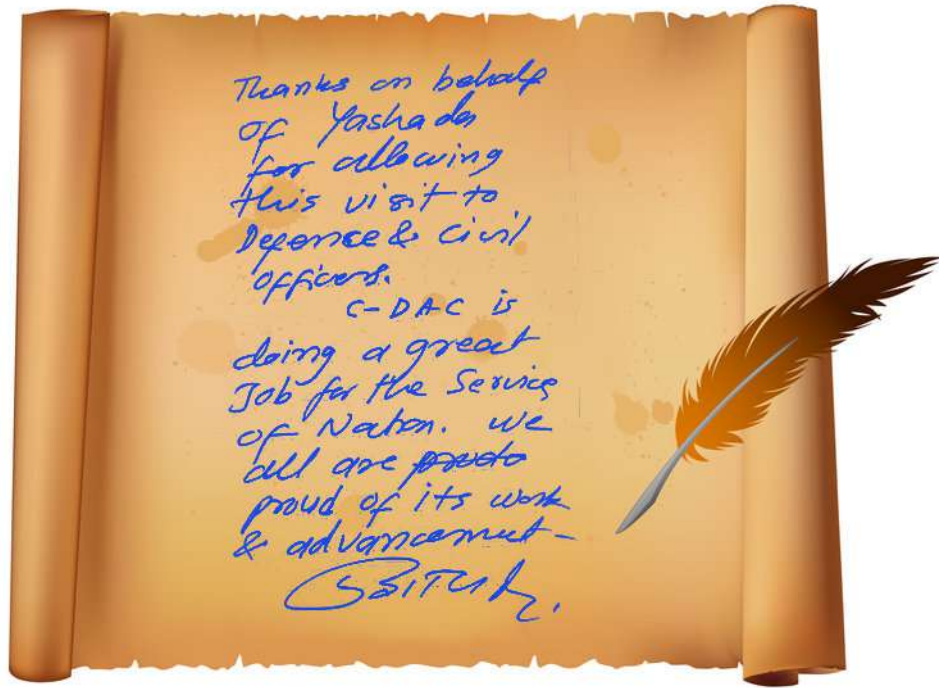 Thanks on behalf
of Yashada
for allowing
this visit to
Defence & Civil
officers.
C-DAC is
doing a great
Job for the Service
of Nation. We
all are
proud of its work
& advancement-